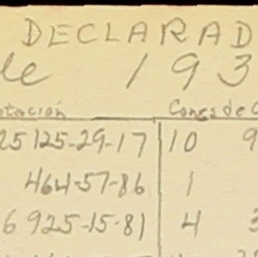 DECLARAD
de 193
otación Cones de C
25 125-29-17 10 9
464-57-86 1
6 925-15-81 4 3